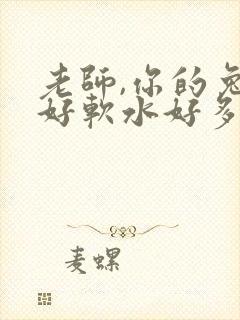 老師,你的兔
好軟水好多
麦螺